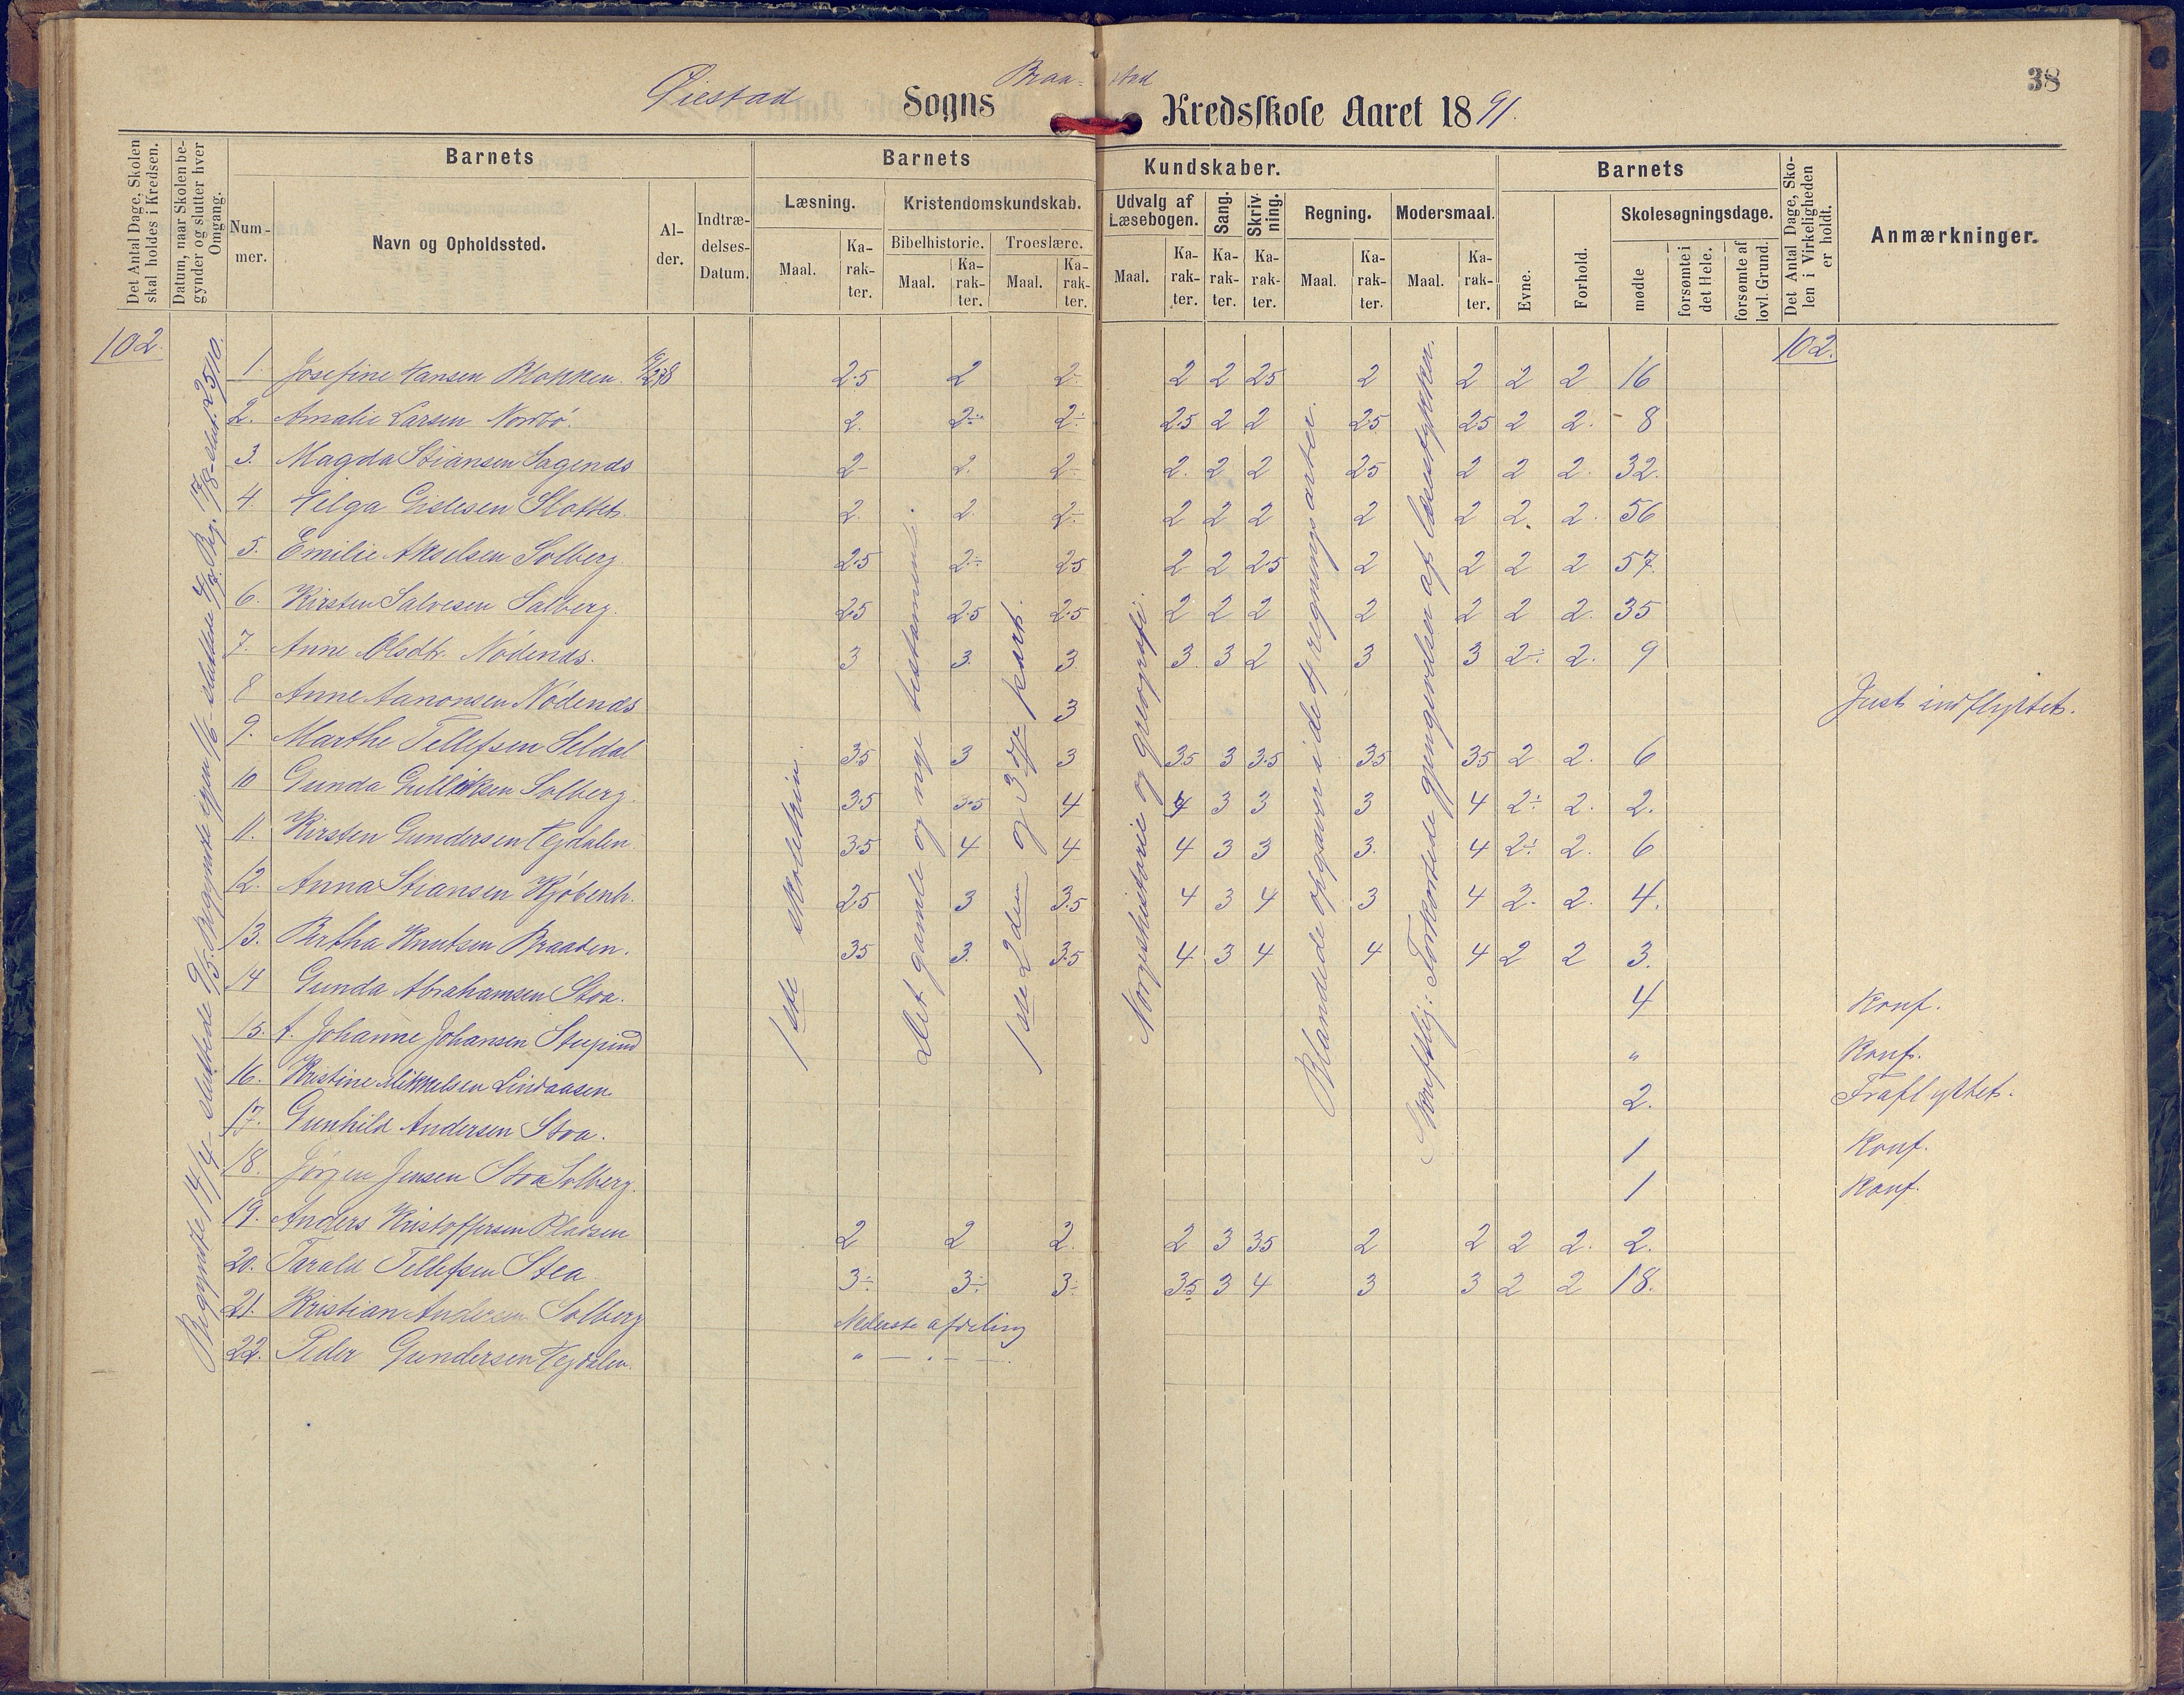 38
Øiestad Sogns Braa- stad Kredsskole Aaret 1891.
Det Antal Dage, Skolen skal holdes i Kredsen.
Datum, naar Skolen begynder og slutter hver Omgang.
Barnets
Nummer.
Navn og Opholdssted.
Alder.
Indtrædelses-Datum.
Barnets Kundskaber.
Læsning.
Maal.
Karakter.
Kristendomskundskab.
Bibelhistorie.
Maal.
Karakter.
Troeslære.
Maal.
Karakter.
Udvalg af Læsebogen.
Maal.
Karakter.
Sang.
Karakter.
Skrivning.
Karakter.
Regning.
Maal.
Karakter.
Modersmaal.
Maal.
Karakter.
Barnets
Evne.
Forhold.
Skolesøgningsdage.
mødte
forsømte i det Hele.
forsømte af lovl. Grund.
Det Antal Dage, Skolen i Virkeligheden er holdt.
Anmærkninger.
102.
102.
Begyndte 14/4 sluttede 9/5. Begyndte igjen 1/6
1ste skoletrin.
Det gamle og nye testamente.
1ste 2den og 3dje part.
Norgeshistorie og geografi.
Blandede opgaver i de 4 regningsarter.
Skriftlig: Forkortede gjengivelser af læsestykker.
1. Josefine Hansen Blokken. 2.5 2 2- 2 2 25 2 2 2 2 16
2. Amalie Larsen Nordbø. 2. 2÷ 2÷ 2.5 2 2 25 25 2 2. 8
3. Magda Stiansen Sagends 2- 2. 2÷ 2. 2 2 25 2 2 2. 32.
4. Helga Gislesen Slottet. 2. 2. 2÷ 2 2 2 2 2 2. 2. 56
5. Emilie Akselsen Solberg. 2.5 2÷ 25 2 2 2.5 2 2 2 2 57.
6. Kirsten Salvesen Solberg. 2.5 2.5 2.5 2 2 2 2 2 2 2. 35
7. Anne Olsdt. Nødends. 3 3. 3. 3. 3 2 3 3 2÷ 2. 9
8 Anne Aanonsen Nødends 3 Just indflyttet.
9. Marthe Tellefsen Seldal 3.5 3 3 3.5 3 3.5 3.5 3.5 2 2. 6
10 Gunda Gulliksen Solberg. 3.5 3.5 4 4 3 3 3 4 2÷ 2. 2.
11. Kirsten Gundersen Vejdalen 3.5 4 4 4 3 3 3. 4 2÷ 2. 6
12. Anna Stiansen Kjøbenh. 2.5 3 3.5 4 3 4 3 4 2. 2. 4.
13. Bertha Knutsen Braaten. 35 3. 3.5 4 3 4 4 4 2 2 3.
14 Gunda Abrahamsen Stoa. 4 Konf.
15. A. Johanne Johansen Stupind " Konf.
16. Kristine Mikkelsen Lindaasen 2. Fraflyttet.
17. Gunhild Andersen Stoa. 1 Konf.
18. Jørgen Jensen Stoa Solberg. 1 Konf.
19. Anders Kristoffersen Pladsen 2 2 2. 2 3 35 2 2 2 2. 2.
20. Tarald Tellefsen Stea 3÷ 3÷ 3÷ 35 3 4 3 3 2 2 18.
21. Kristian Andersen Solberg Nederste afdeling
22. Peder Gundersen Vejdalen. " — . — .